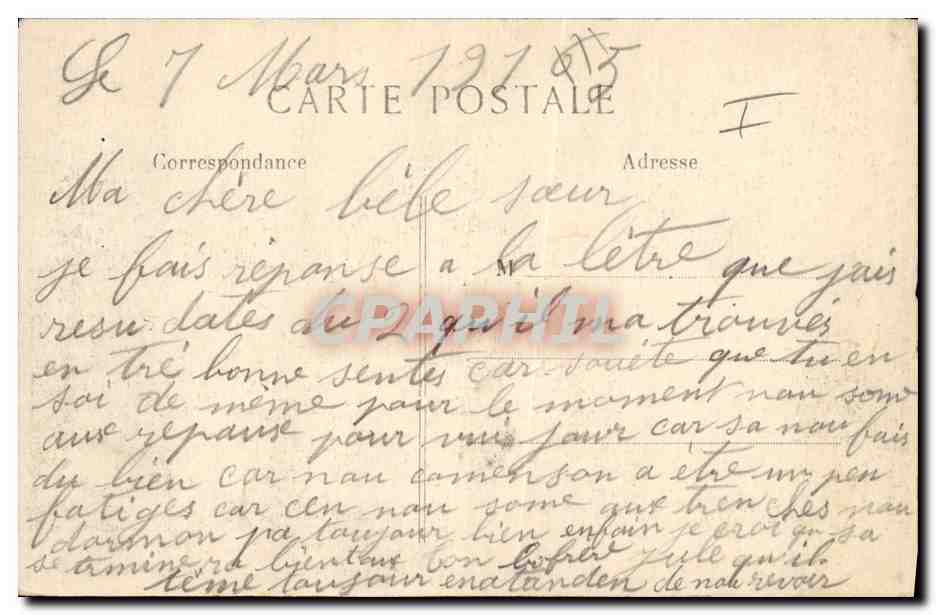 Le 7 Mars 1915
CARTE POSTALE
I
Correspondance Adresse
Ma chère bèle sœur
je fais réponse a la lêtre que jais
M
CPAPHIL
resu dates du 2 qu'il ma trouvés
en tré bonne sentes car souète que tu en
soi de même pour le moment nou some
aux repaux pour jour car sa nou fais
du bien car nou comenson a être un peu
fatiges car cen nou some aux trenchés nou
dormon pa toujour bien enfain je croi qu sa
se terminera bientaux ton bofrère Jule qu'il
tème toujour enatanden de nou revoir